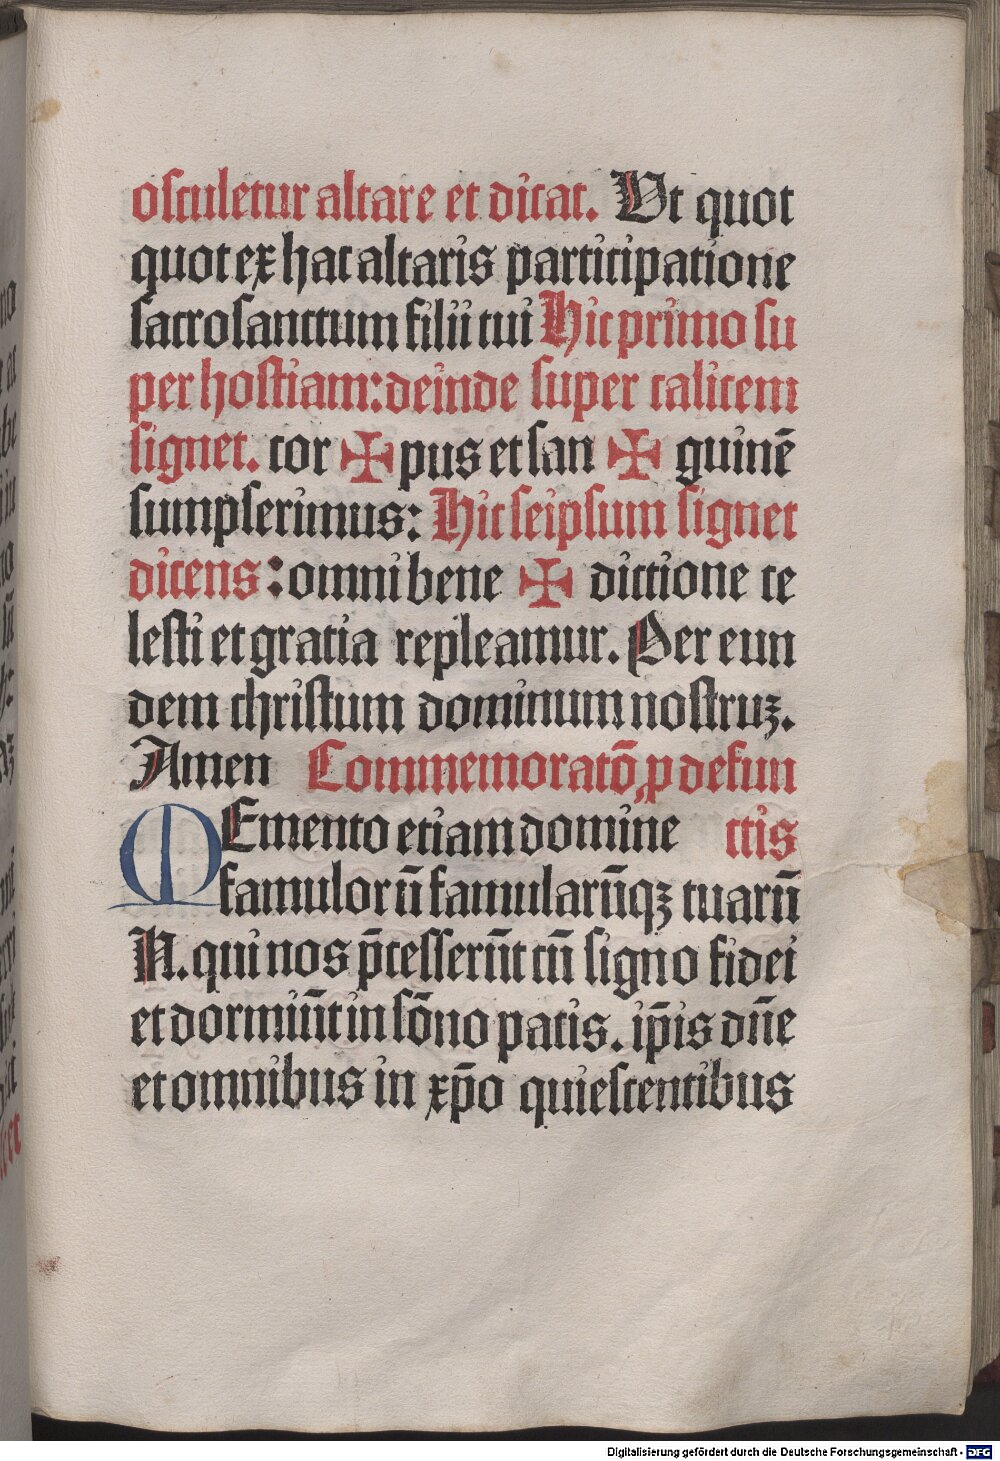 osculetur altare et dicat. Ut quot
quot ex hac altaris participatione
sacrosanctum filii tui Hic primo su
per hostiam: deinde super calicem
signet. cor ✠ pus et san ✠ guinē
sumpserimus: Hic seipsum signet
dicens: omni bene ✠ dictione ce
lesti et gratia repleamur. Per eun
dem christum dominum nostruꝫ.
Amen Commemoratō ꝓ defun
MEmento etiam domine ctis
famulorū famularūqꝫ tuarū
N. qui nos p̄cesserūt cū signo fidei
et dormiūt in sōno pacis. ip̄is dn̄e
et omnibus in xp̄o quiescentibus
Digitalisierung gefördert durch die Deutsche Forschungsgemeinschaft - DFG